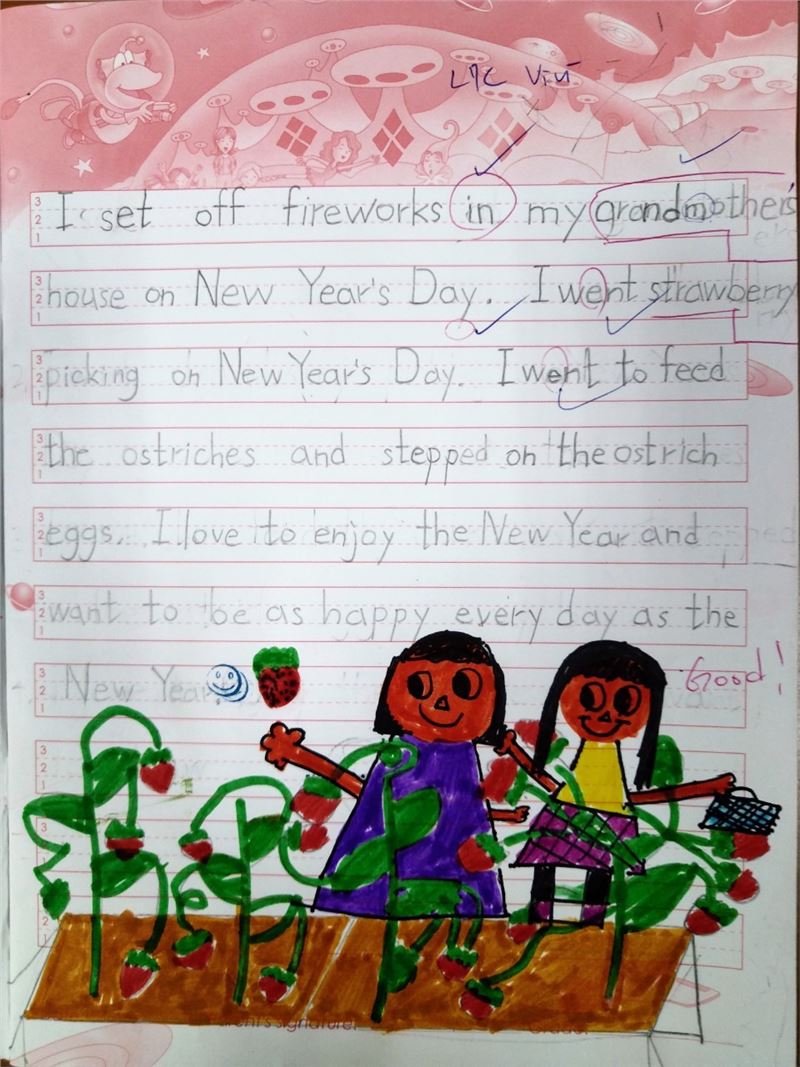 I set off fireworks in my grandmother's
house on New Year's Day. I went strawberry
picking on New Year's Day. I went to feed
the ostriches and stepped on the ostrich
eggs. I love to enjoy the New Year and
want to be as happy every day as the
New Year.
Good!